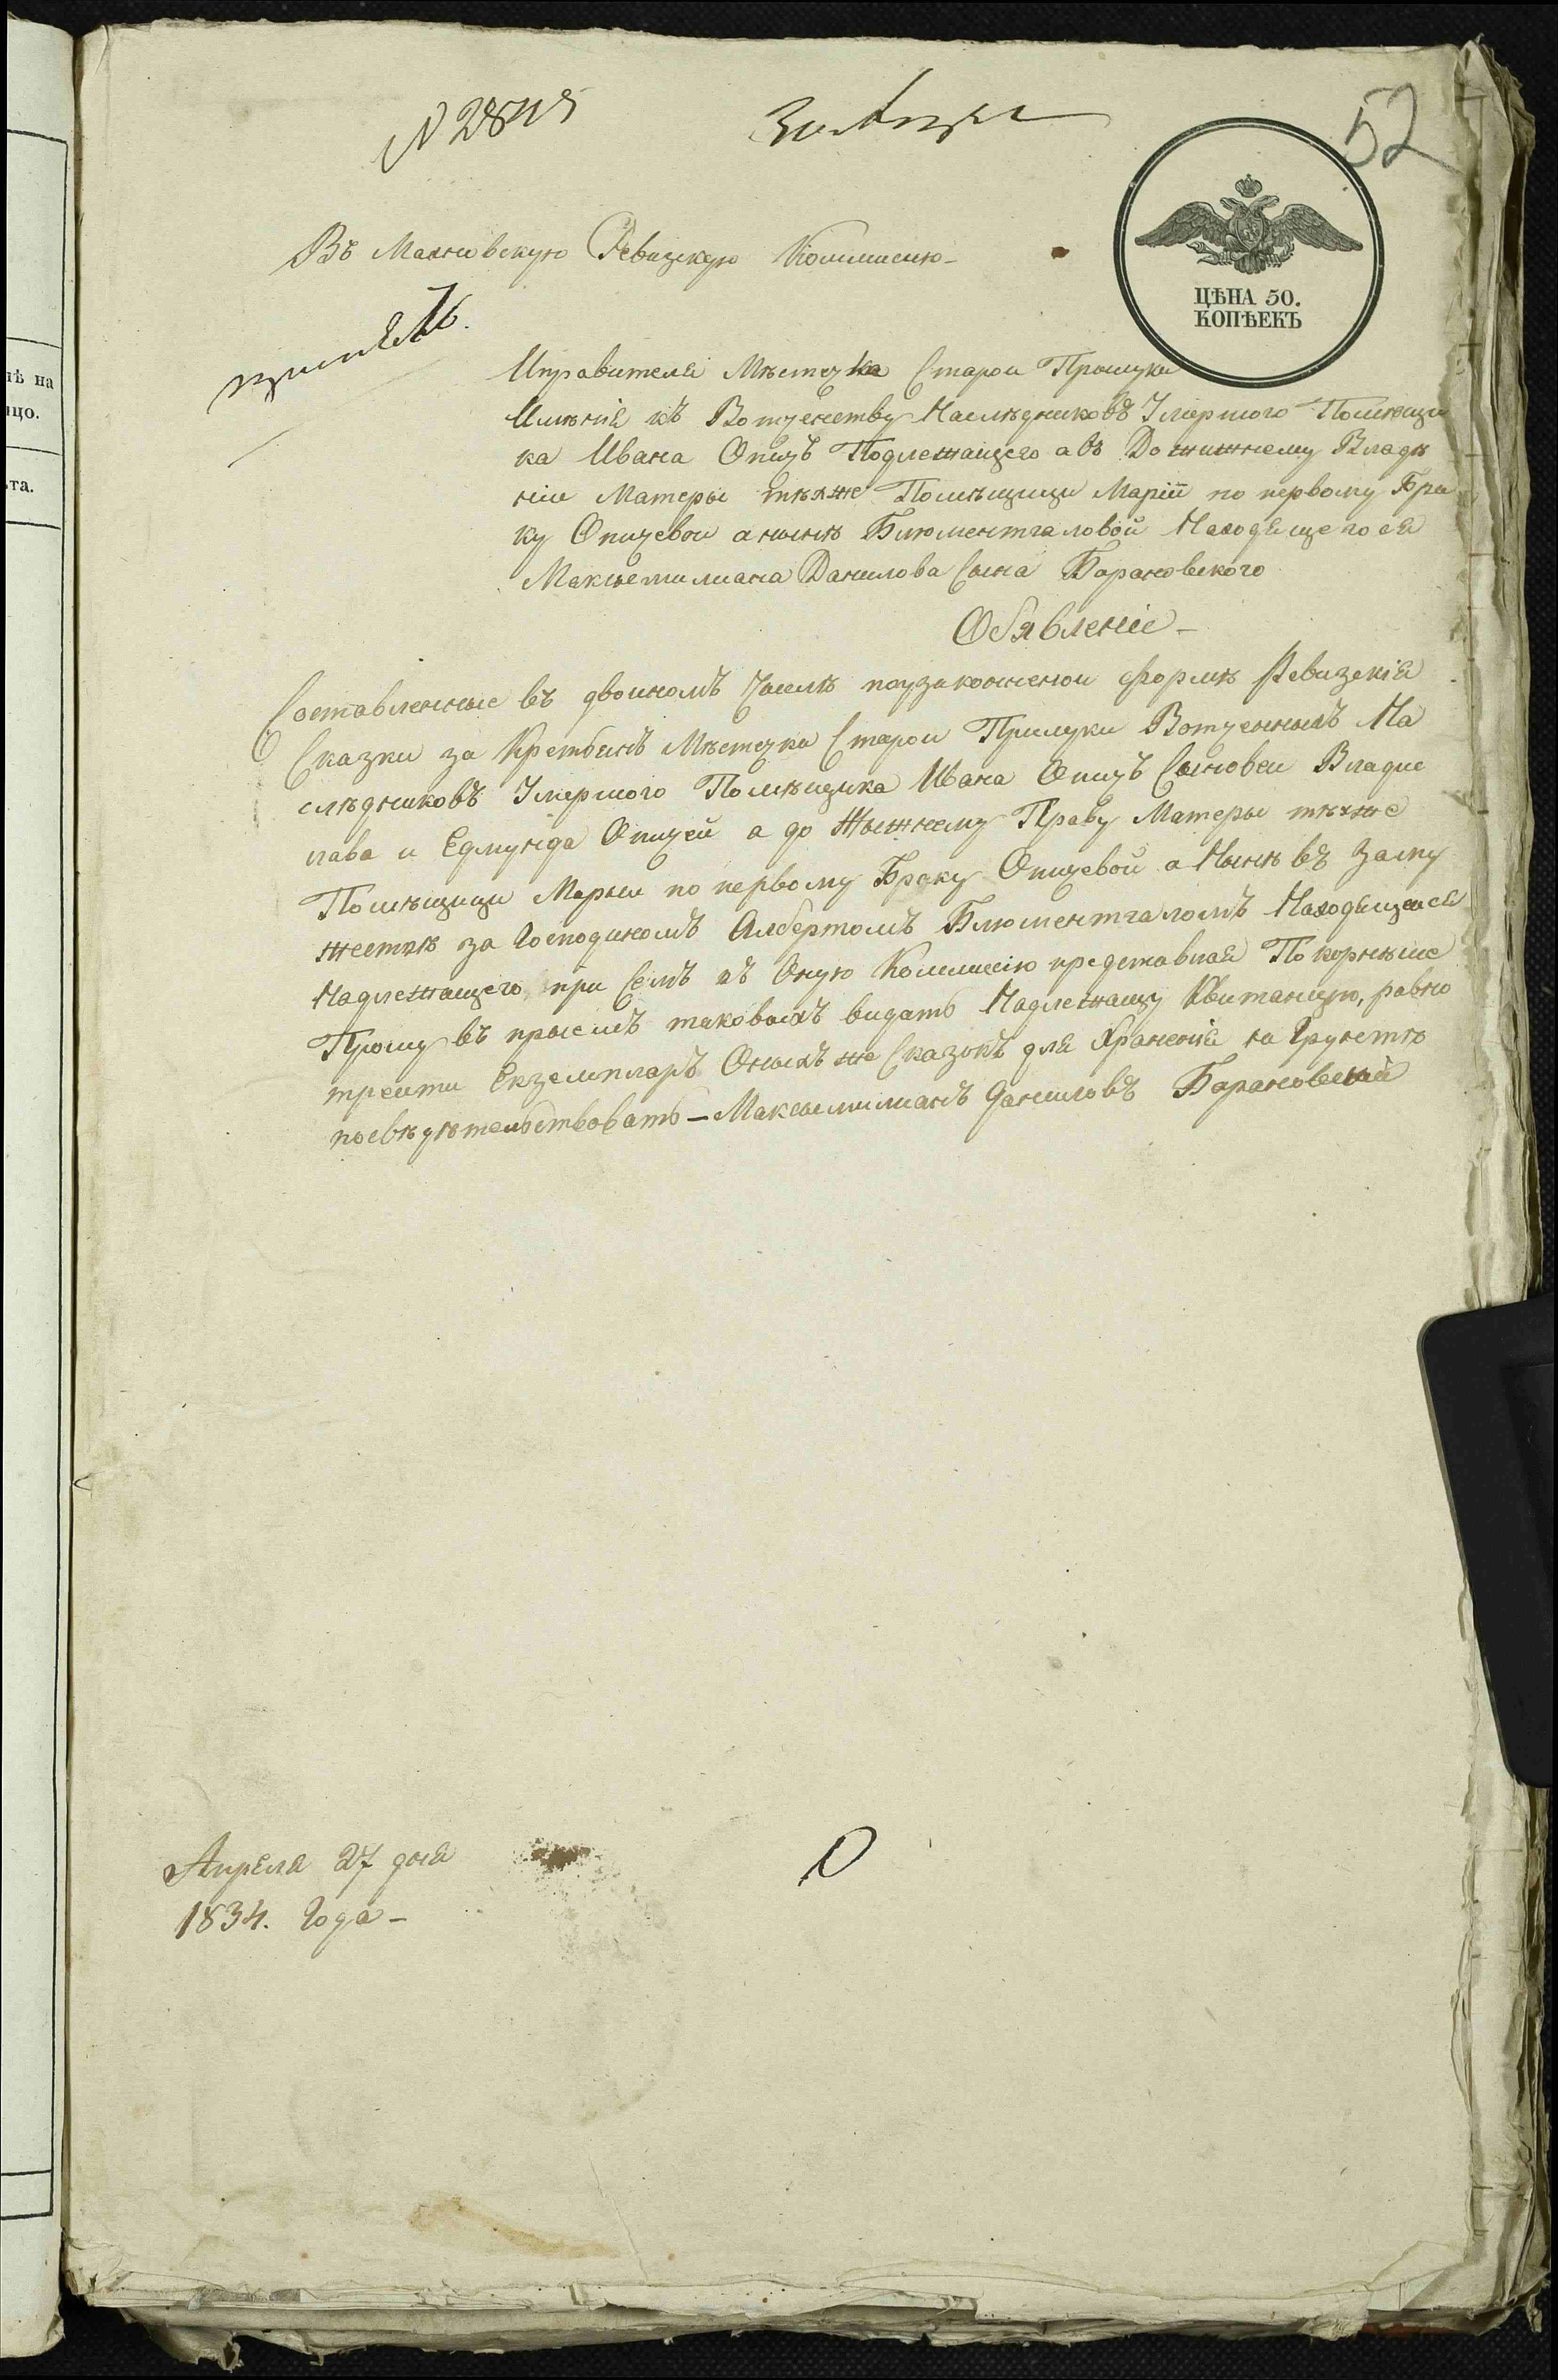 52
N 2845
Въ Махновскую Ревизкую Коммисию
ЦѢНА 50.
КОПѢЕКЪ
Управителя Мѣстечка Старои Прылуки
Имѣнія къ Вотченству Наслѣдниковъ Умершого Помѣщи
ка Ивана Опицъ Подлежащего а въ Дожижнему Владѣ
ніи Матеры тѣхже Помѣщици Маріи по первому Бра
ку Опицевои а нынѣ Блюментгаловой Находящегося
Максымилиана Данилова Сына Барановского
Обявленіе
Составленные въ двоиномъ Числѣ поузаконненои формѣ Ревизскія
Сказки за Крестянъ Мѣстечка Старои Прилуки Вотченныхъ На
слѣдниковъ Умершого Помѣщика Ивана Опицъ Сыновеи Владис
лава и Едмунда Опицей а до Жыжнему Праву Матеры тѣхже
Помѣщици Марыи по первому Браку Опицевой а Нынѣ въ Заму
жестѣ за Господиномъ Албертомъ Блюментгаломъ Находящейся
Надлежащего при Семъ въ Оную Коммисію представляя Покорнѣше
Прошу въ прыемѣ таковыхъ видать Надлежащу Квитанцію, равно
трети Екземпларъ Оныхъ же Сказокъ для Хранения на Грунетѣ
посвѣдѣтельствовать — Максымилианъ Даниловъ Барановский
Апреля 27 дня
1834. Года
нѣ на
ицо.
ѣта.